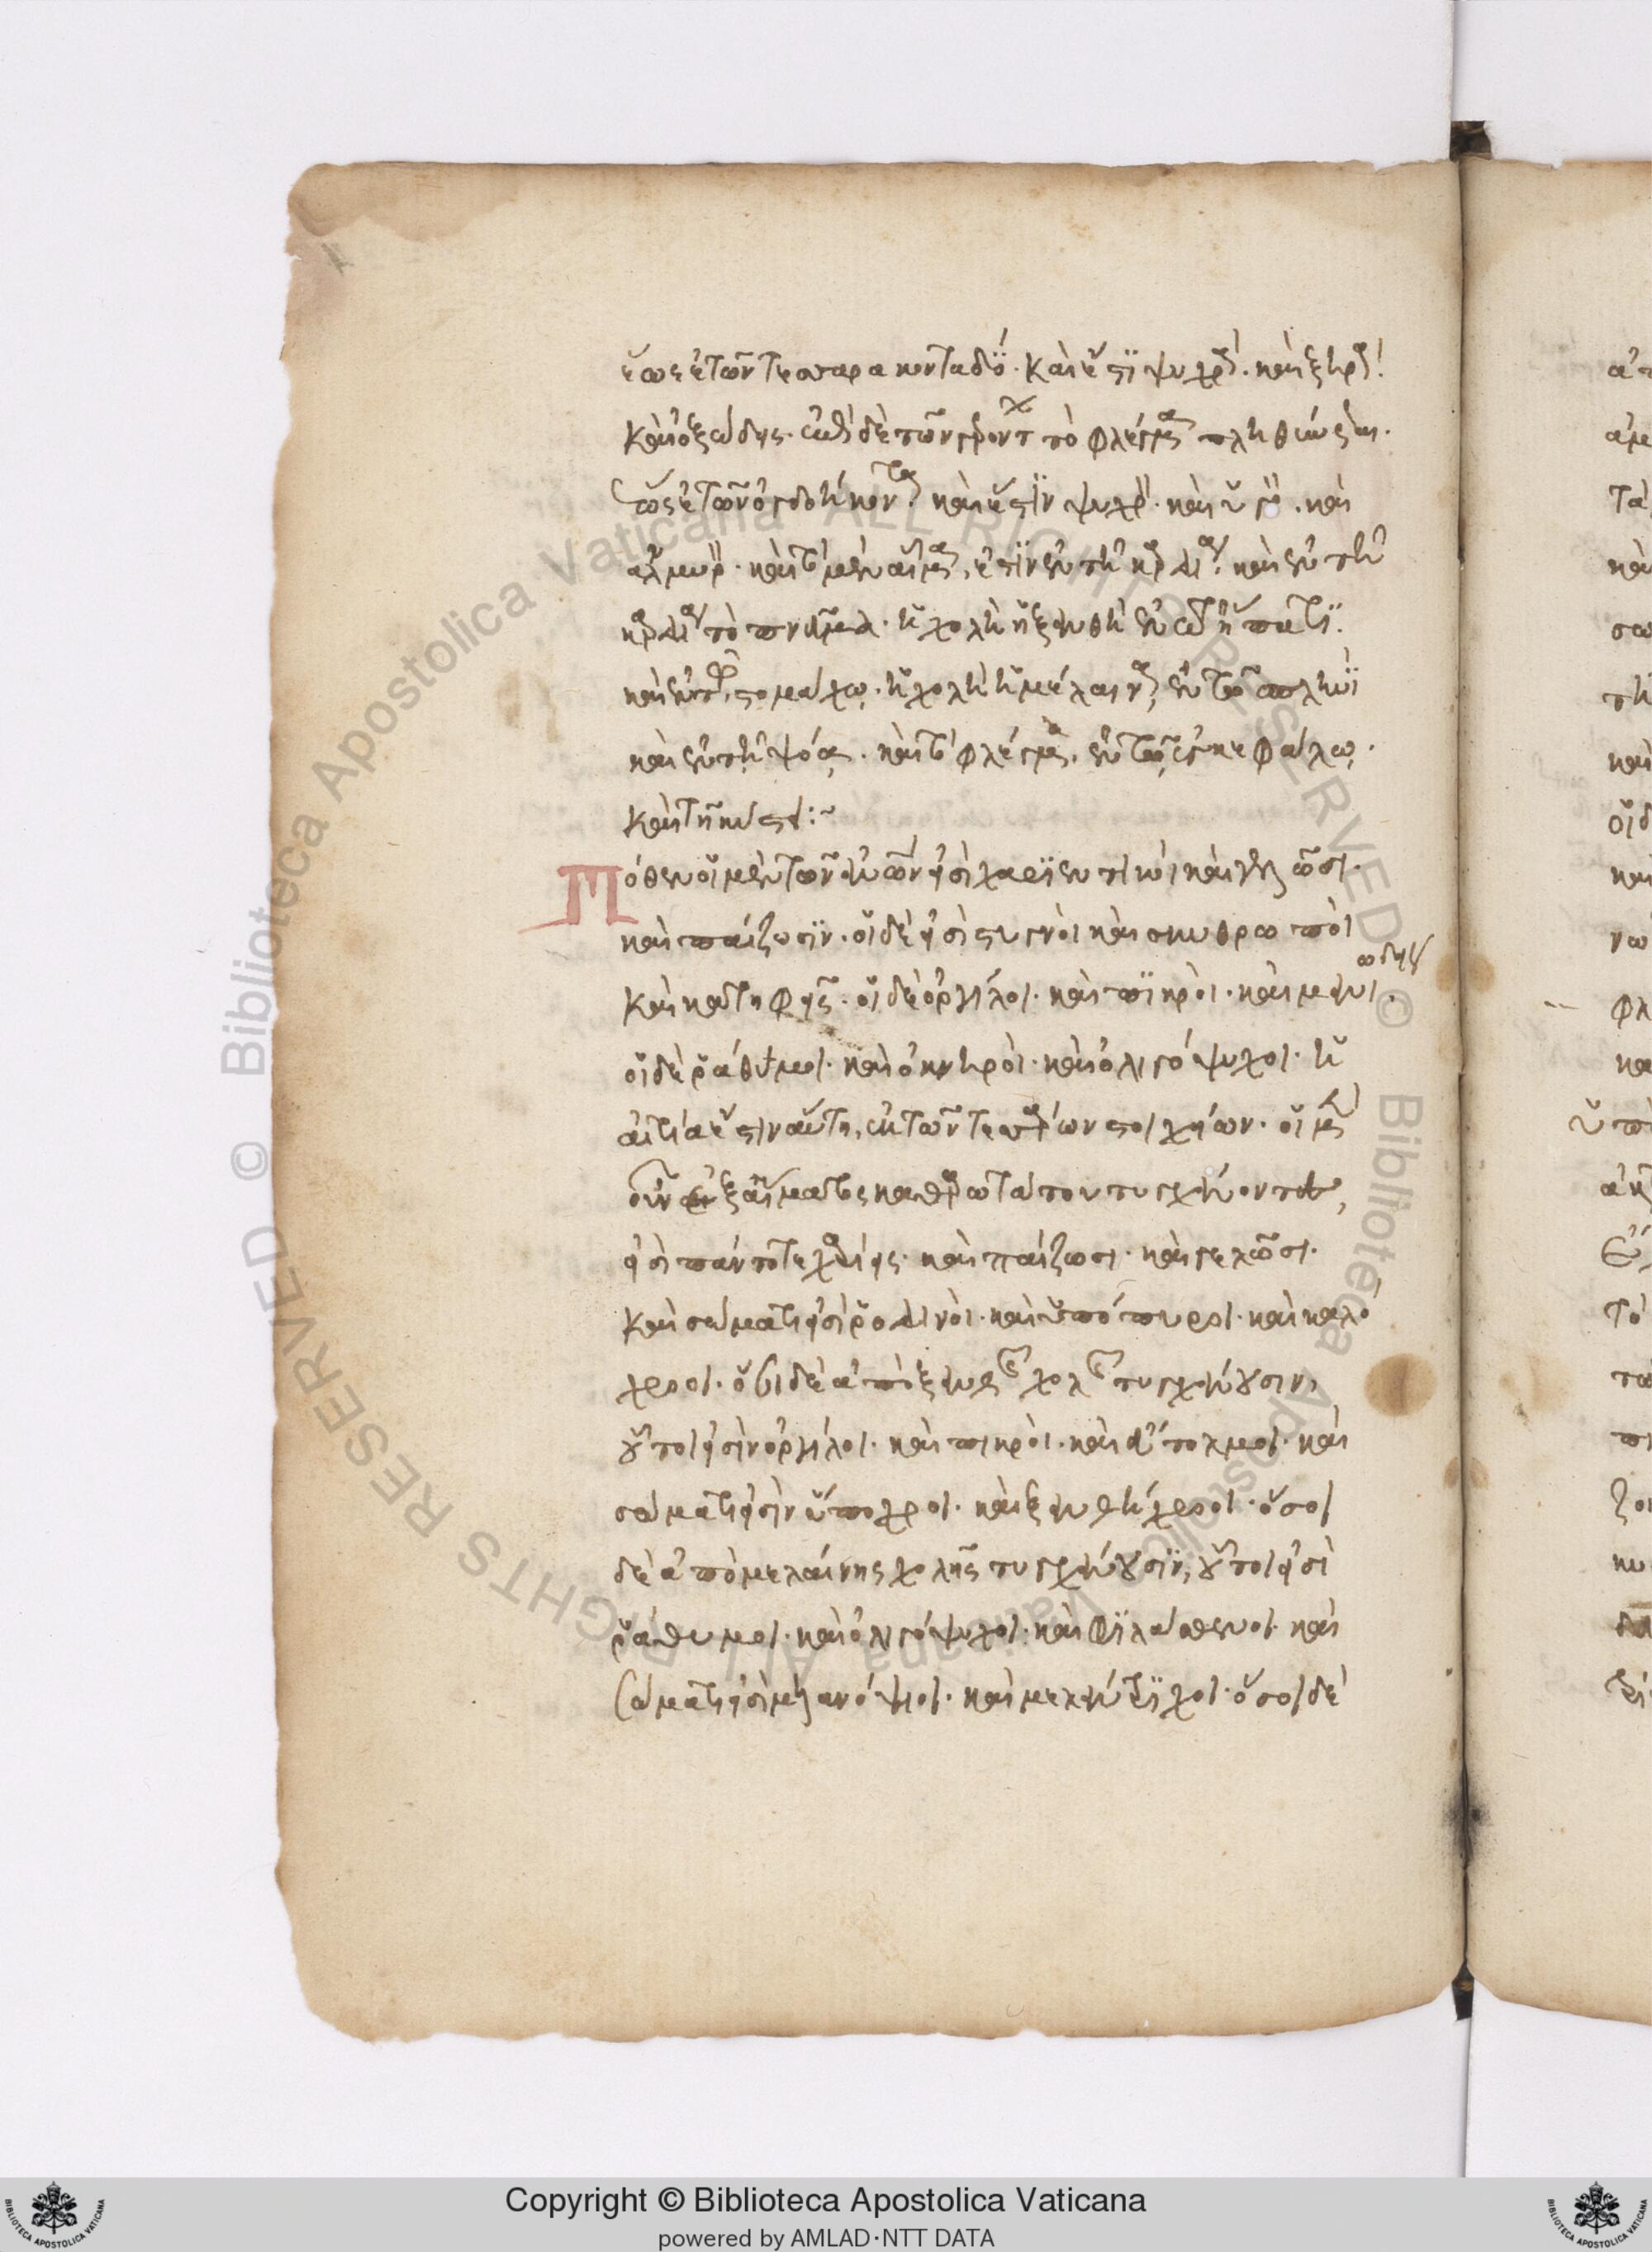 ἕως ἐτῶν τεσσαρακονταδύο. καὶ ἔστι ψυχρὰ. καὶ ξηρὰ.
καὶ ὀξώδης. ἐπὶ δὲ τῶν γερόντ τὸ φλέγμα πληθύνεται.
ἕως ἐτῶν ὀγδοήκοντα καὶ ἔστιν ψυχρὸ. καὶ ὑγρὸ. καὶ
ἁλμυρὸ. καὶ τὸ μὲν αἷμα, ἐστὶν ἐν τῇ καρδίᾳ. καὶ ἐν τῇ
καρδίᾳ τὸ πνεῦμα. ἡ χολὴ ἡ ξανθὴ ἐν τῷ ἥπατι.
καὶ ἐν τῷ στομάχῳ. ἡ χολὴ ἡ μέλαινα, ἐν τῷ σπληνὶ
καὶ ἐν τῇ ψόᾳ. καὶ τὸ φλέγμα, ἐν τῷ ἐγκεφάλῳ.
καὶ τῇ κύστει:~
Πόθεν οἱ μὲν τῶν ἀνῶν εἰσὶ χαριεντικοὶ καὶ γελῶσι.
καὶ παίζωσιν. οἱ δὲ εἰσὶ στυγνοὶ καὶ σκυθρωποὶ
καὶ κατηφεῖς. οἱ δὲ ὀργίλοι. καὶ πικροὶ. καὶ μανιώδεις.
οἱ δὲ ῥάθυμοι. καὶ ὀκνηροὶ. καὶ ὀλιγόψυχοι. ἡ
αἰτία ἔστιν αὕτη, ἐκ τῶν τεσσάρων στοιχείων. οἱ μὲν
οὖν ἐξ αἵματος καθαρωτάτου τυγχάνοντες,
εἰσὶ πάντοτε χαρίεις. καὶ παίζωσι. καὶ γελῶσι.
καὶ σώματι εἰσὶ ῥοδινοὶ. καὶ ὑπόπυροι. καὶ καλό
χροοι. ὅσοι δὲ ἀπὸ ξανθῆς χολῆς τυγχάνουσιν,
οὗτοι εἰσὶν ὀργίλοι. καὶ πικροὶ. καὶ εὔτολμοι. καὶ
σώματι εἰσὶν ὕπωχροι. καὶ ξανθήχροοι. ὅσοι
δὲ ἀπὸ μελαίνης χολῆς τυγχάνουσιν, οὗτοι εἰσὶ
ῥάθυμοι. καὶ ὀλιγόψυχοι. καὶ φιλάσθενοι. καὶ
σώματι εἰσὶ μελανόψιοι. καὶ μελανότριχοι. ὅσοι δὲ
Copyright © Biblioteca Apostolica Vaticana
powered by AMLAD·NTT DATA